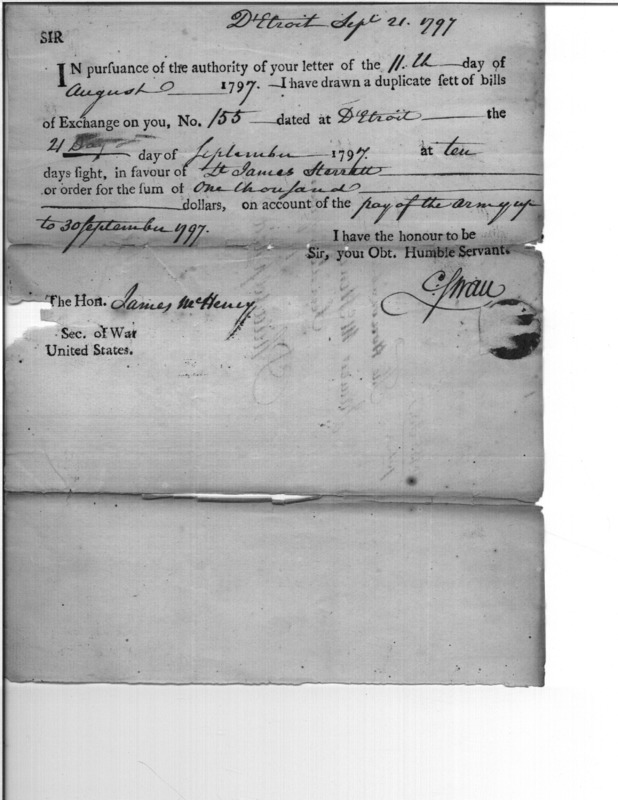 D'Etroit Sept 21. 1797
SIR
IN pursuance of the authority of your letter of the 11.th day of
August 1797. I have drawn a duplicate sett of bills
of Exchange on you, No. 155 dated at D'Etroit the
21 Day day of September 1797. at ten
days sight, in favour of Lt James Sterrett
or order for the sum of One thousand
dollars, on account of the pay of the army up
to 30 September 1797.
I have the honour to be
Sir, your Obt. Humble Servant.
C. Swan
The Hon. James McHenry
Sec. of War
United States.